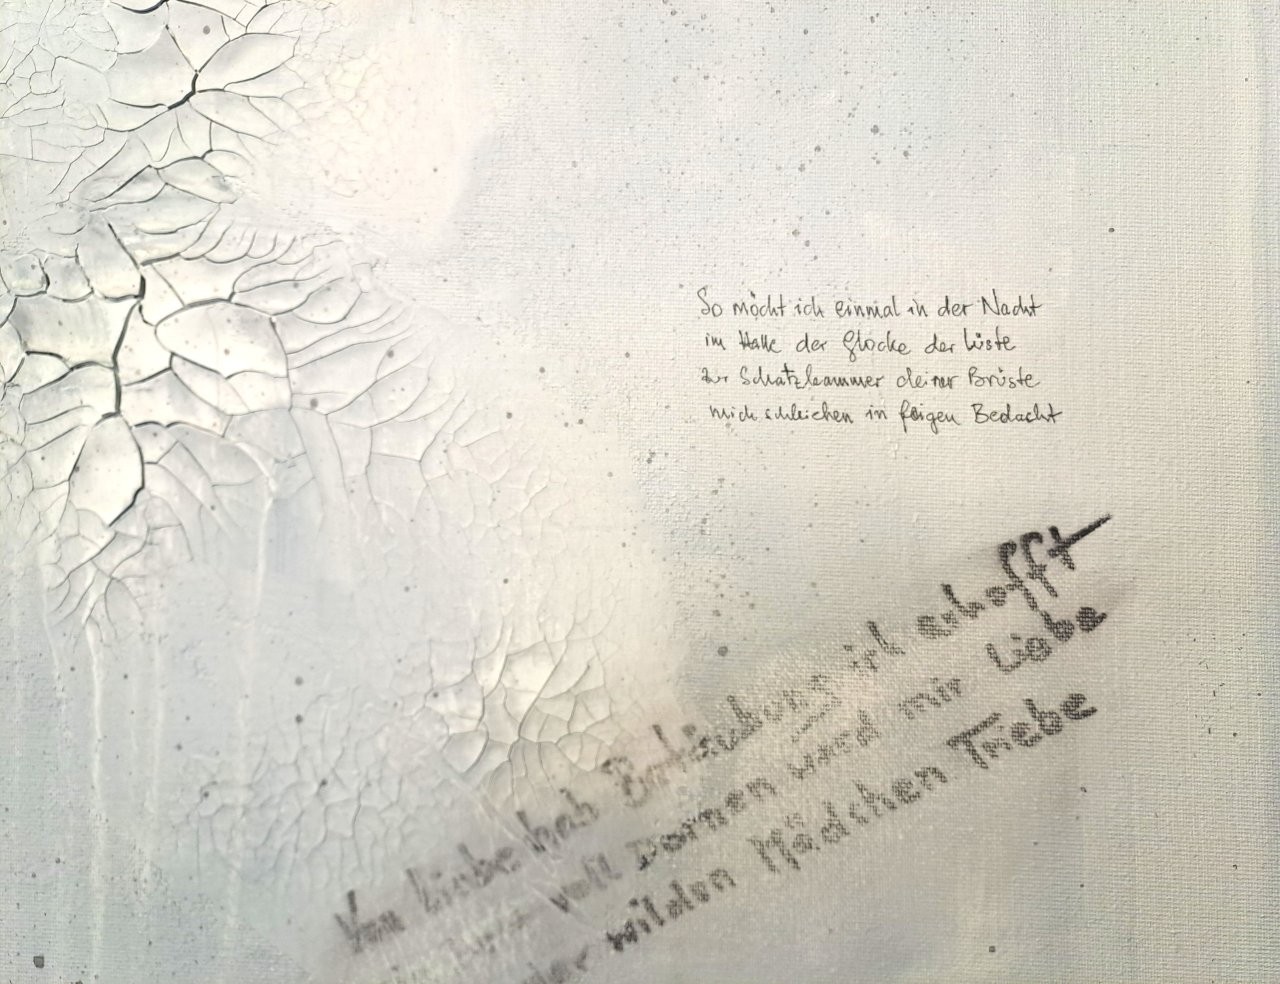 So möcht ich einmal in der Nacht
im Halle der Glocke der Lüste
zur Schatzkammer deiner Brüste
mich schleichen in feigen Bedacht
Von Liebe hab Berauschung ich erhofft
voll Dornen ward mir Liebe
der wilden Mädchen Triebe